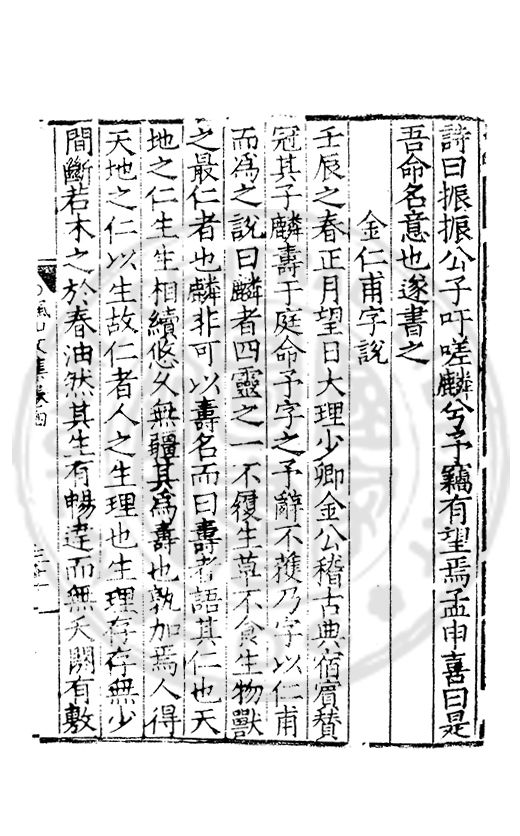 詩曰振振公子吁嗟麟兮予竊有望焉孟申喜曰是
吾命名意也遂書之
金仁甫字說
壬辰之春正月望日大理少卿金公稽古典宿賓贊
冠其子麟壽于庭命予字之予辭不獲乃字以仁甫
而爲之說曰麟者四靈之一不履生草不食生物獸
之最仁者也麟非可以壽名而曰壽者語其仁也天
地之仁生生相續悠久無疆其爲壽也孰加焉人得
天地之仁以生故仁者人之生理也生理存存無少
間斷若木之於春油然其生有暢達而無夭閼有敷